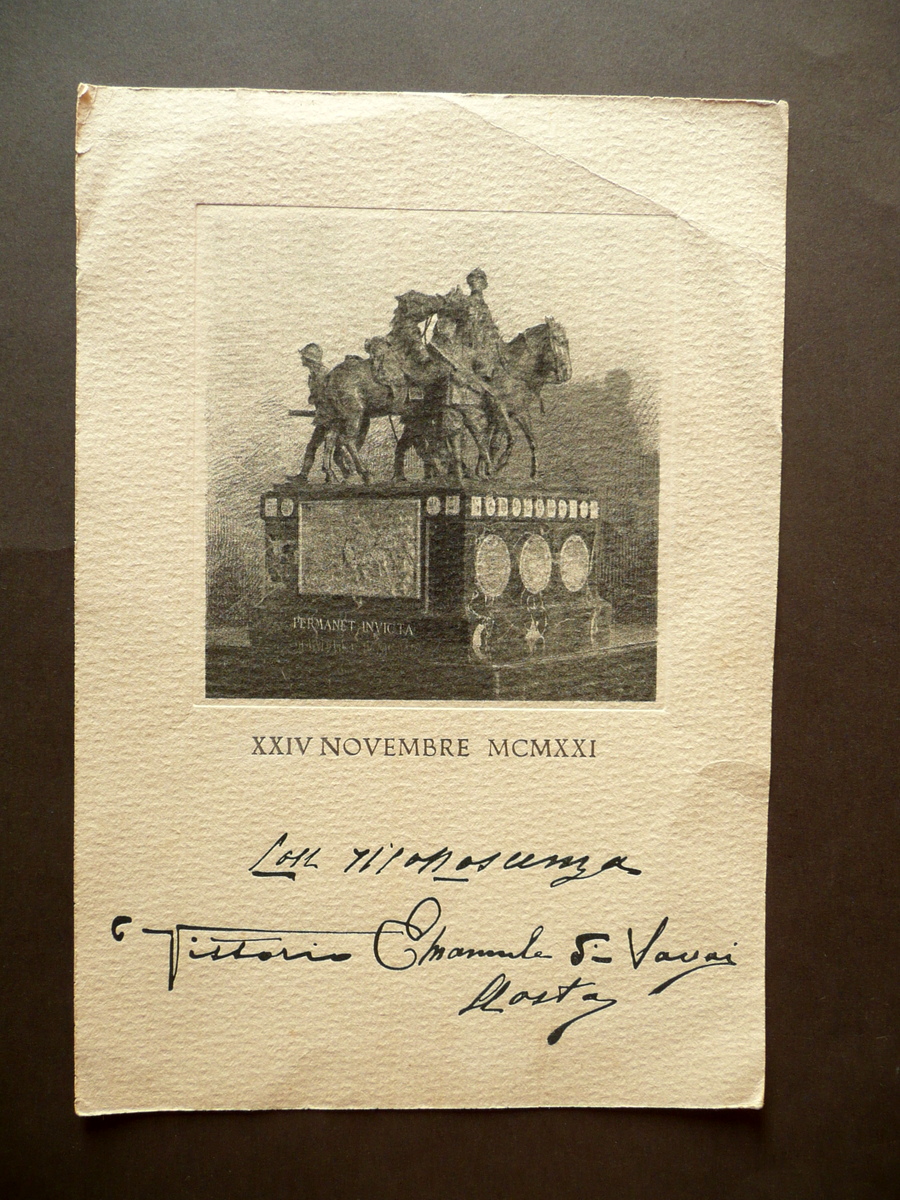 PERMANET INVICTA
XXIV NOVEMBRE MCMXXI
Con riconoscenza
Vittorio Emanuele di Savoia
Aosta